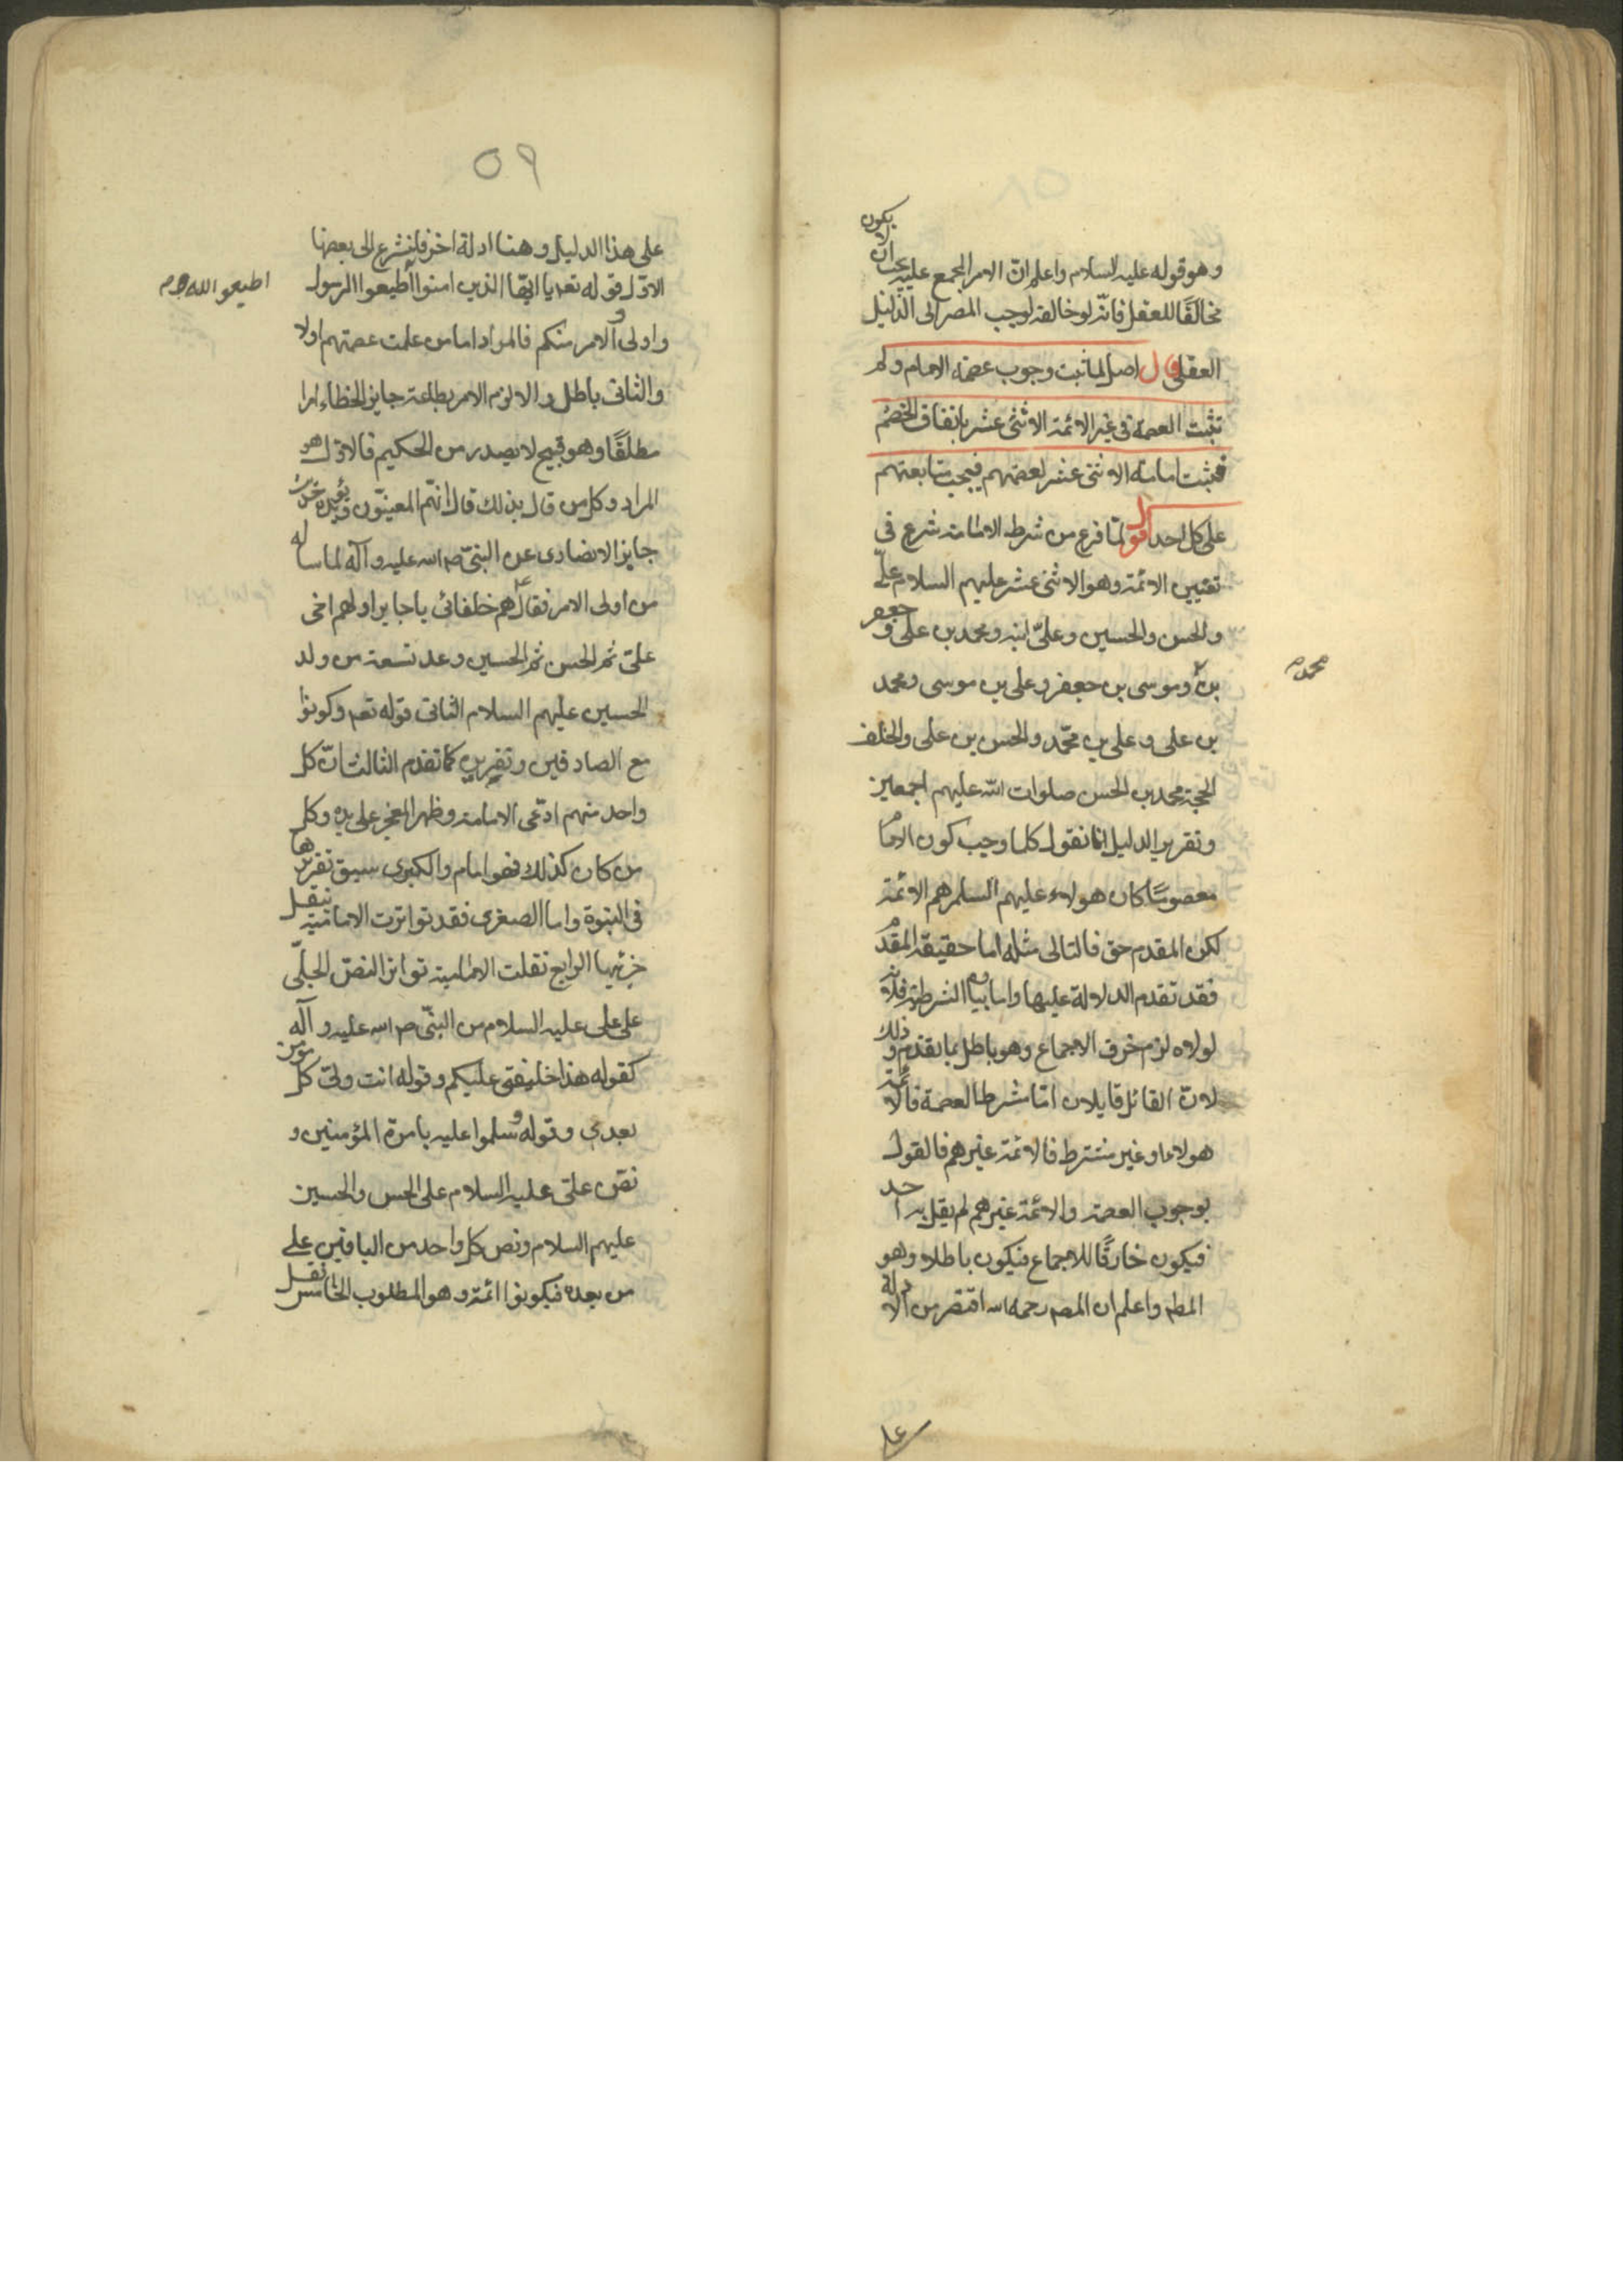 وهو قوله عليه السلام واعلم ان الامر المجمع عليه يجب ان لا يكون
مخالفًا للعقل فانه لو خالفه لوجب المصير الى الدليل
العقلي قال اصل لما ثبت وجوب عصمة الامام ولم
تثبت العصمة في غير الائمة الاثنى عشر باتفاق الخصم
فثبت امامة الاثنى عشر لعصمتهم فيجب متابعتهم
على كل احد اقول لمّا فرغ من شرط الامامة شرع في
تعيين الائمة وهو الاثنى عشر عليهم السلام علىّ
والحسن والحسين وعلىّ ابنه ومحمد بن على و جعفر
بن وموسى بن جعفر وعلى بن موسى ومحمد
محمد م
بن على و على بن محمّد والحسن بن على والخلف
الحجة محمد بن الحسن صلوات الله عليهم اجمعين
وتقرير الدليل انا نقول كلما وجب كون الامام
معصومًا كان هولاء عليهم السلم هم الائمة
لكن المقدم حق فالتالى مثله اما حقيقة المقدم
فقد تقدم الدلالة عليها واما بيان الشرطية فلانه
لولاه لزم خرق الاجماع وهو باطل بما تقدم و ذلك
لانّ القائل قايلان امّا شرط العصمة فالائمة
هولاء او غير مشترط فالائمة غيرهم فالقول
بوجوب العصمة والائمة غيرهم لم يقل به احد
فيكون خارقًا للاجماع فيكون باطلا وهو
المط واعلم ان المصـ رحمه اسه اقتصر من الادلة
على
٥٩
على هذا الدليل وهنا ادلة اخر فلنشرع الى بعضها
الاوّل قوله تعـ يا ايّها الذين امنوا اطيعوا الرسول
اطيعو الله و م
واولى الامر منكم فالمراد اما من علمت عصمتهم اولا
والثانى باطل والا لزم الامر بطاعة جايز الخطاء امرا
مطلقًا وهو قبيح لا يصدر من الحكيم فالاوّل هو
المراد وكل من قال بذلك قال انّهم المعيّنون ويؤيده خبر
جابر الانصارى عن النبىّ صـ اسه عليه وآله لما ساله
من اولى الامر فقال هم خلفائى يا جابر اولهم اخى
علىّ ثم الحسن ثم الحسين وعد تسعة من ولد
الحسين عليهم السلام الثانى قوله تعـ وكونوا
مع الصادقين وتقريره كما تقدم الثالث انّ كل
واحد منهم ادّعى الامامة وظهر المعجز على يده وكل
من كان كذلك فهو امام والكبرى سبق تقريرها
فى النبوة واما الصغرى فقد تواترت الامامية بنقل
جزئيها الرابع نقلت الامامية تواتر النصّ الجلىّ
على على عليه السلام من النبىّ صـ اسه عليه وآله
كقوله هذا خليفتى عليكم وقوله انت ولىّ كل مؤمن
بعدى وقوله وسلموا عليه بامرة المؤمنين و
نصّ علىّ عليه السلام على الحسن والحسين
عليهم السلام ونص كل واحد من الباقين على
من بعده فيكونوا ائمة وهو المطلوب الخامس نقل